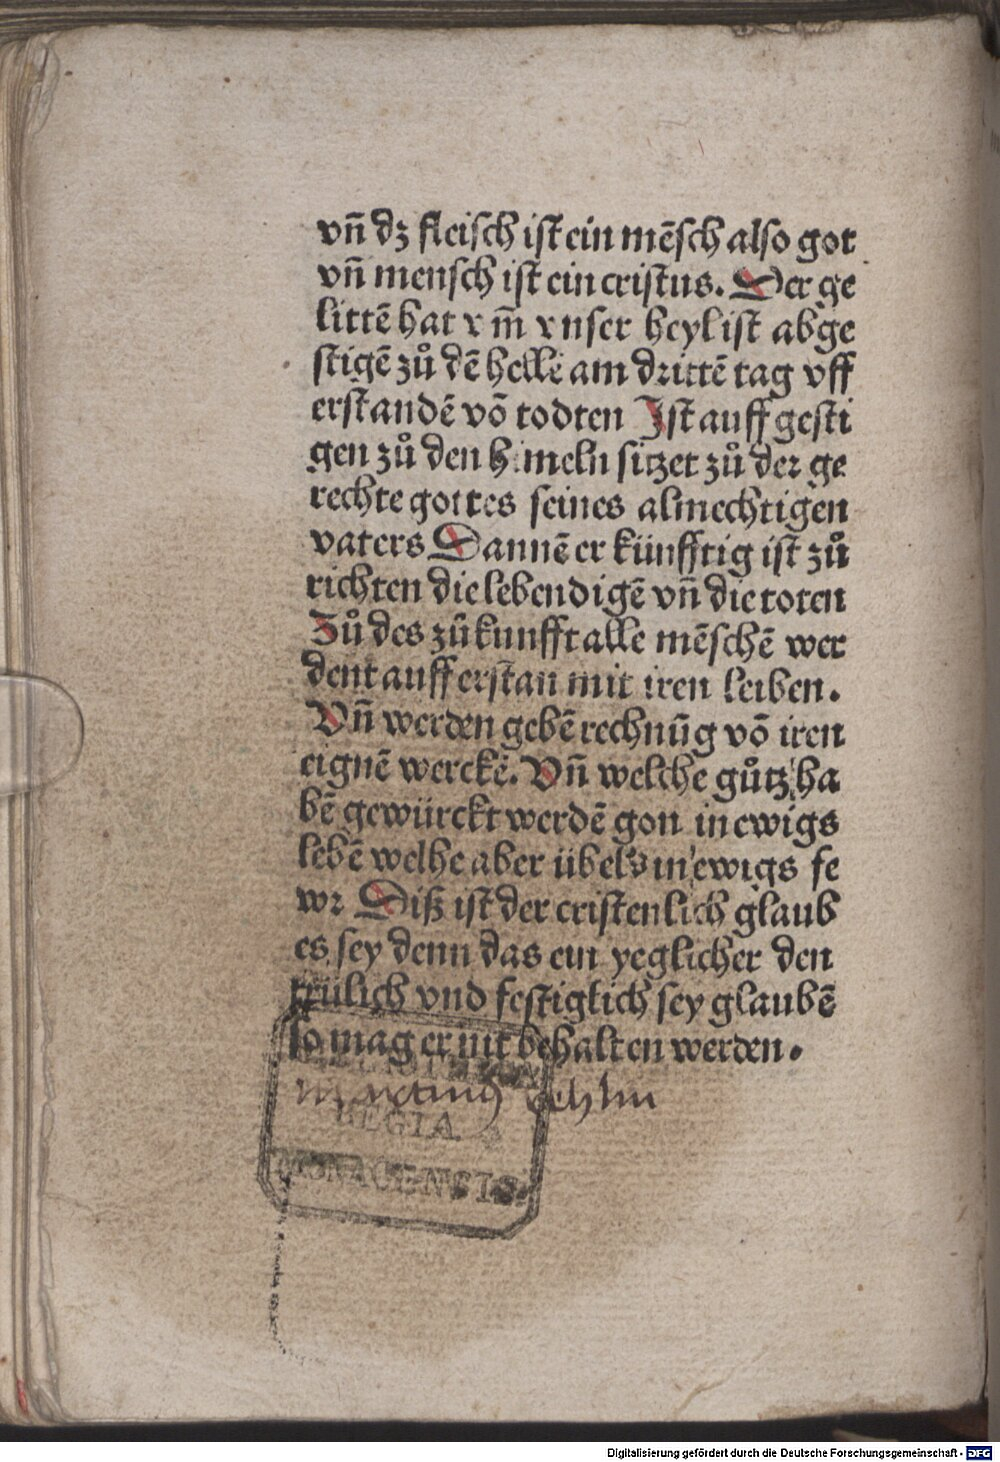 vñ dz fleisch ist ein mẽsch also got
vñ mensch ist ein cristus. Der ge
littẽ hat vm̃ vnser heyl ist abge
stigẽ zů dẽ helle am drittẽ tag vff
erstandẽ võ todten Ist auff gesti
gen zů den himeln sitzet zů der ge
rechte gottes seines almechtigen
vaters Dannẽ er künfftig ist zů
richten die lebendigẽ vñ die toten
Zů des zůkunfft alle mẽschẽ wer
dent aufferstan mit iren leiben.
Vñ werden gebẽ rechnũg võ iren
eignẽ werckẽ. Vñ welche gůtz ha
bẽ gewürckt werdẽ gon in ewigs
lebẽ welhe aber übels in ewigs fe
wr Diß ist der cristenlich glaub
es sey denn das ein yeglicher den
trülich vnd festiglich sey glaubẽ
so mag er nit behalten werden.
martinus
REGIA
MONACENSIS.
Digitalisierung gefördert durch die Deutsche Forschungsgemeinschaft - DFG